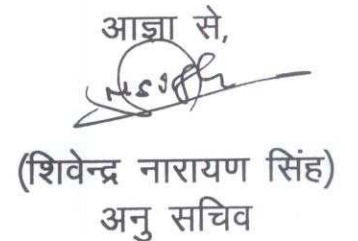 आज्ञा से,
(शिवेन्द्र नारायण सिंह)
अनु सचिव